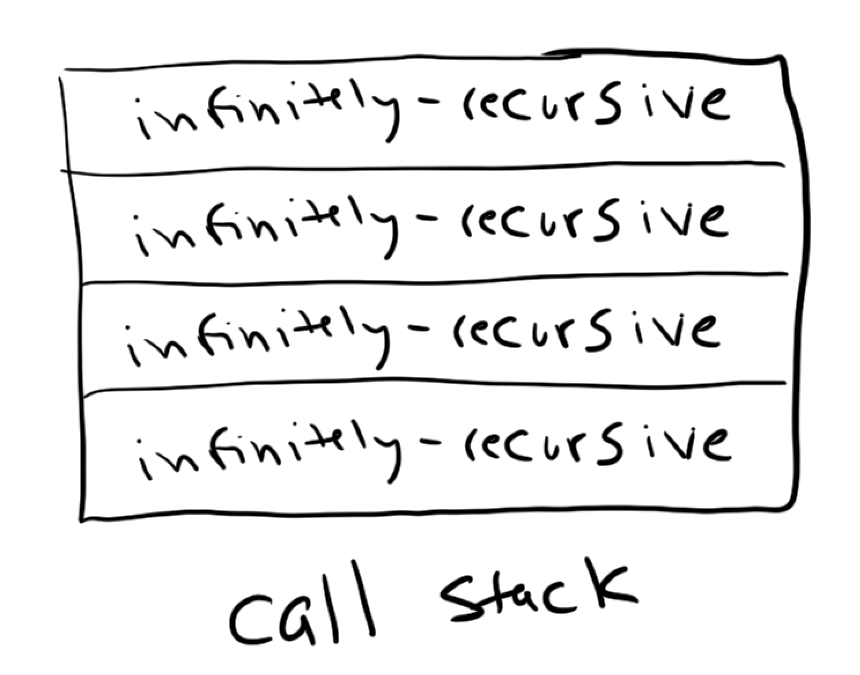 infinitely-recursive
infinitely-recursive
infinitely-recursive
infinitely-recursive
call stack